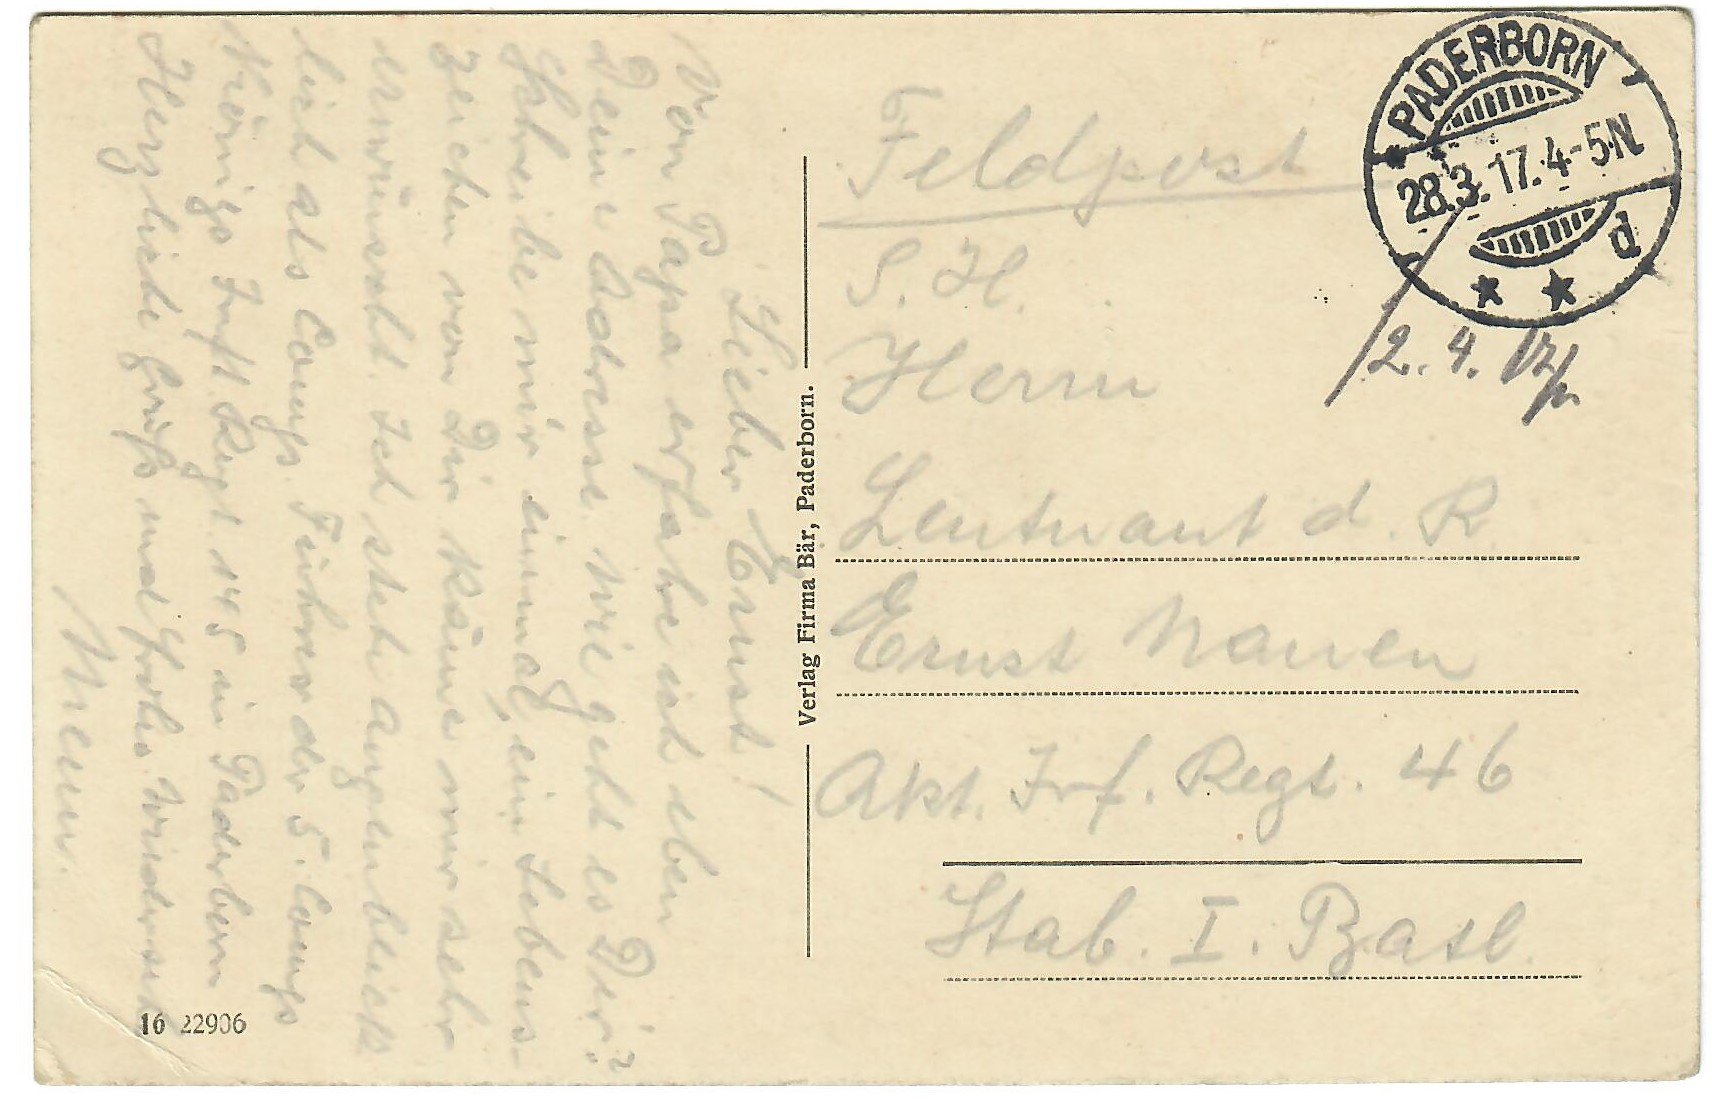 Lieber Ernst!
Von Papa erfahre ich eben
Deine Adresse. Wie geht es Dir?
Schreibe mir einmal, ein Lebens-
zeichen von Dir käme mir sehr
erwünscht. Ich stehe augenblick
lich als Comp. Führer der 5. Comp
Königs Inft. Regt. 145 in Paderborn
Herzliche Grüße und frohes Wiedersehn
Verlag Firma Bär, Paderborn.
16 22906
PADERBORN
28.3.17.4-5N
d
2.4.17
Feldpost
S. H.
Herrn
Leutnant d. R
Ernst Nauen
Akt. Inf. Regt. 46
Stab. I. Batl.